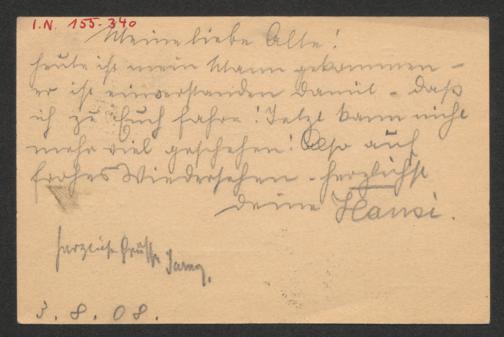 I.N. 155.340
Meine liebe Alte!
heute ist mein Mann gekommen –
er ist einverstanden damit – daß
ich zu Euch fahre! Jetzt kann nicht
mehr viel geschehen! Also auf
frohes Wiedersehen – herzlichst
deine Hansi.
herzliche Grüße
3.8.08.